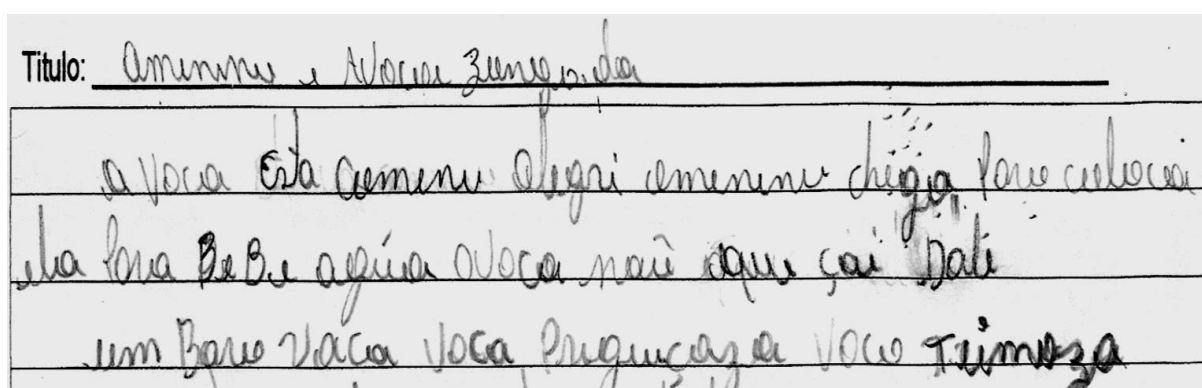 Titulo: amininu e avoca zangada
a voca Esta comenu alegri omeninu chega para colocai
ela Para BeBe agúa avoca naũ que çai Dali
um Boro vaca voca Priguiçoza voca Teimoza